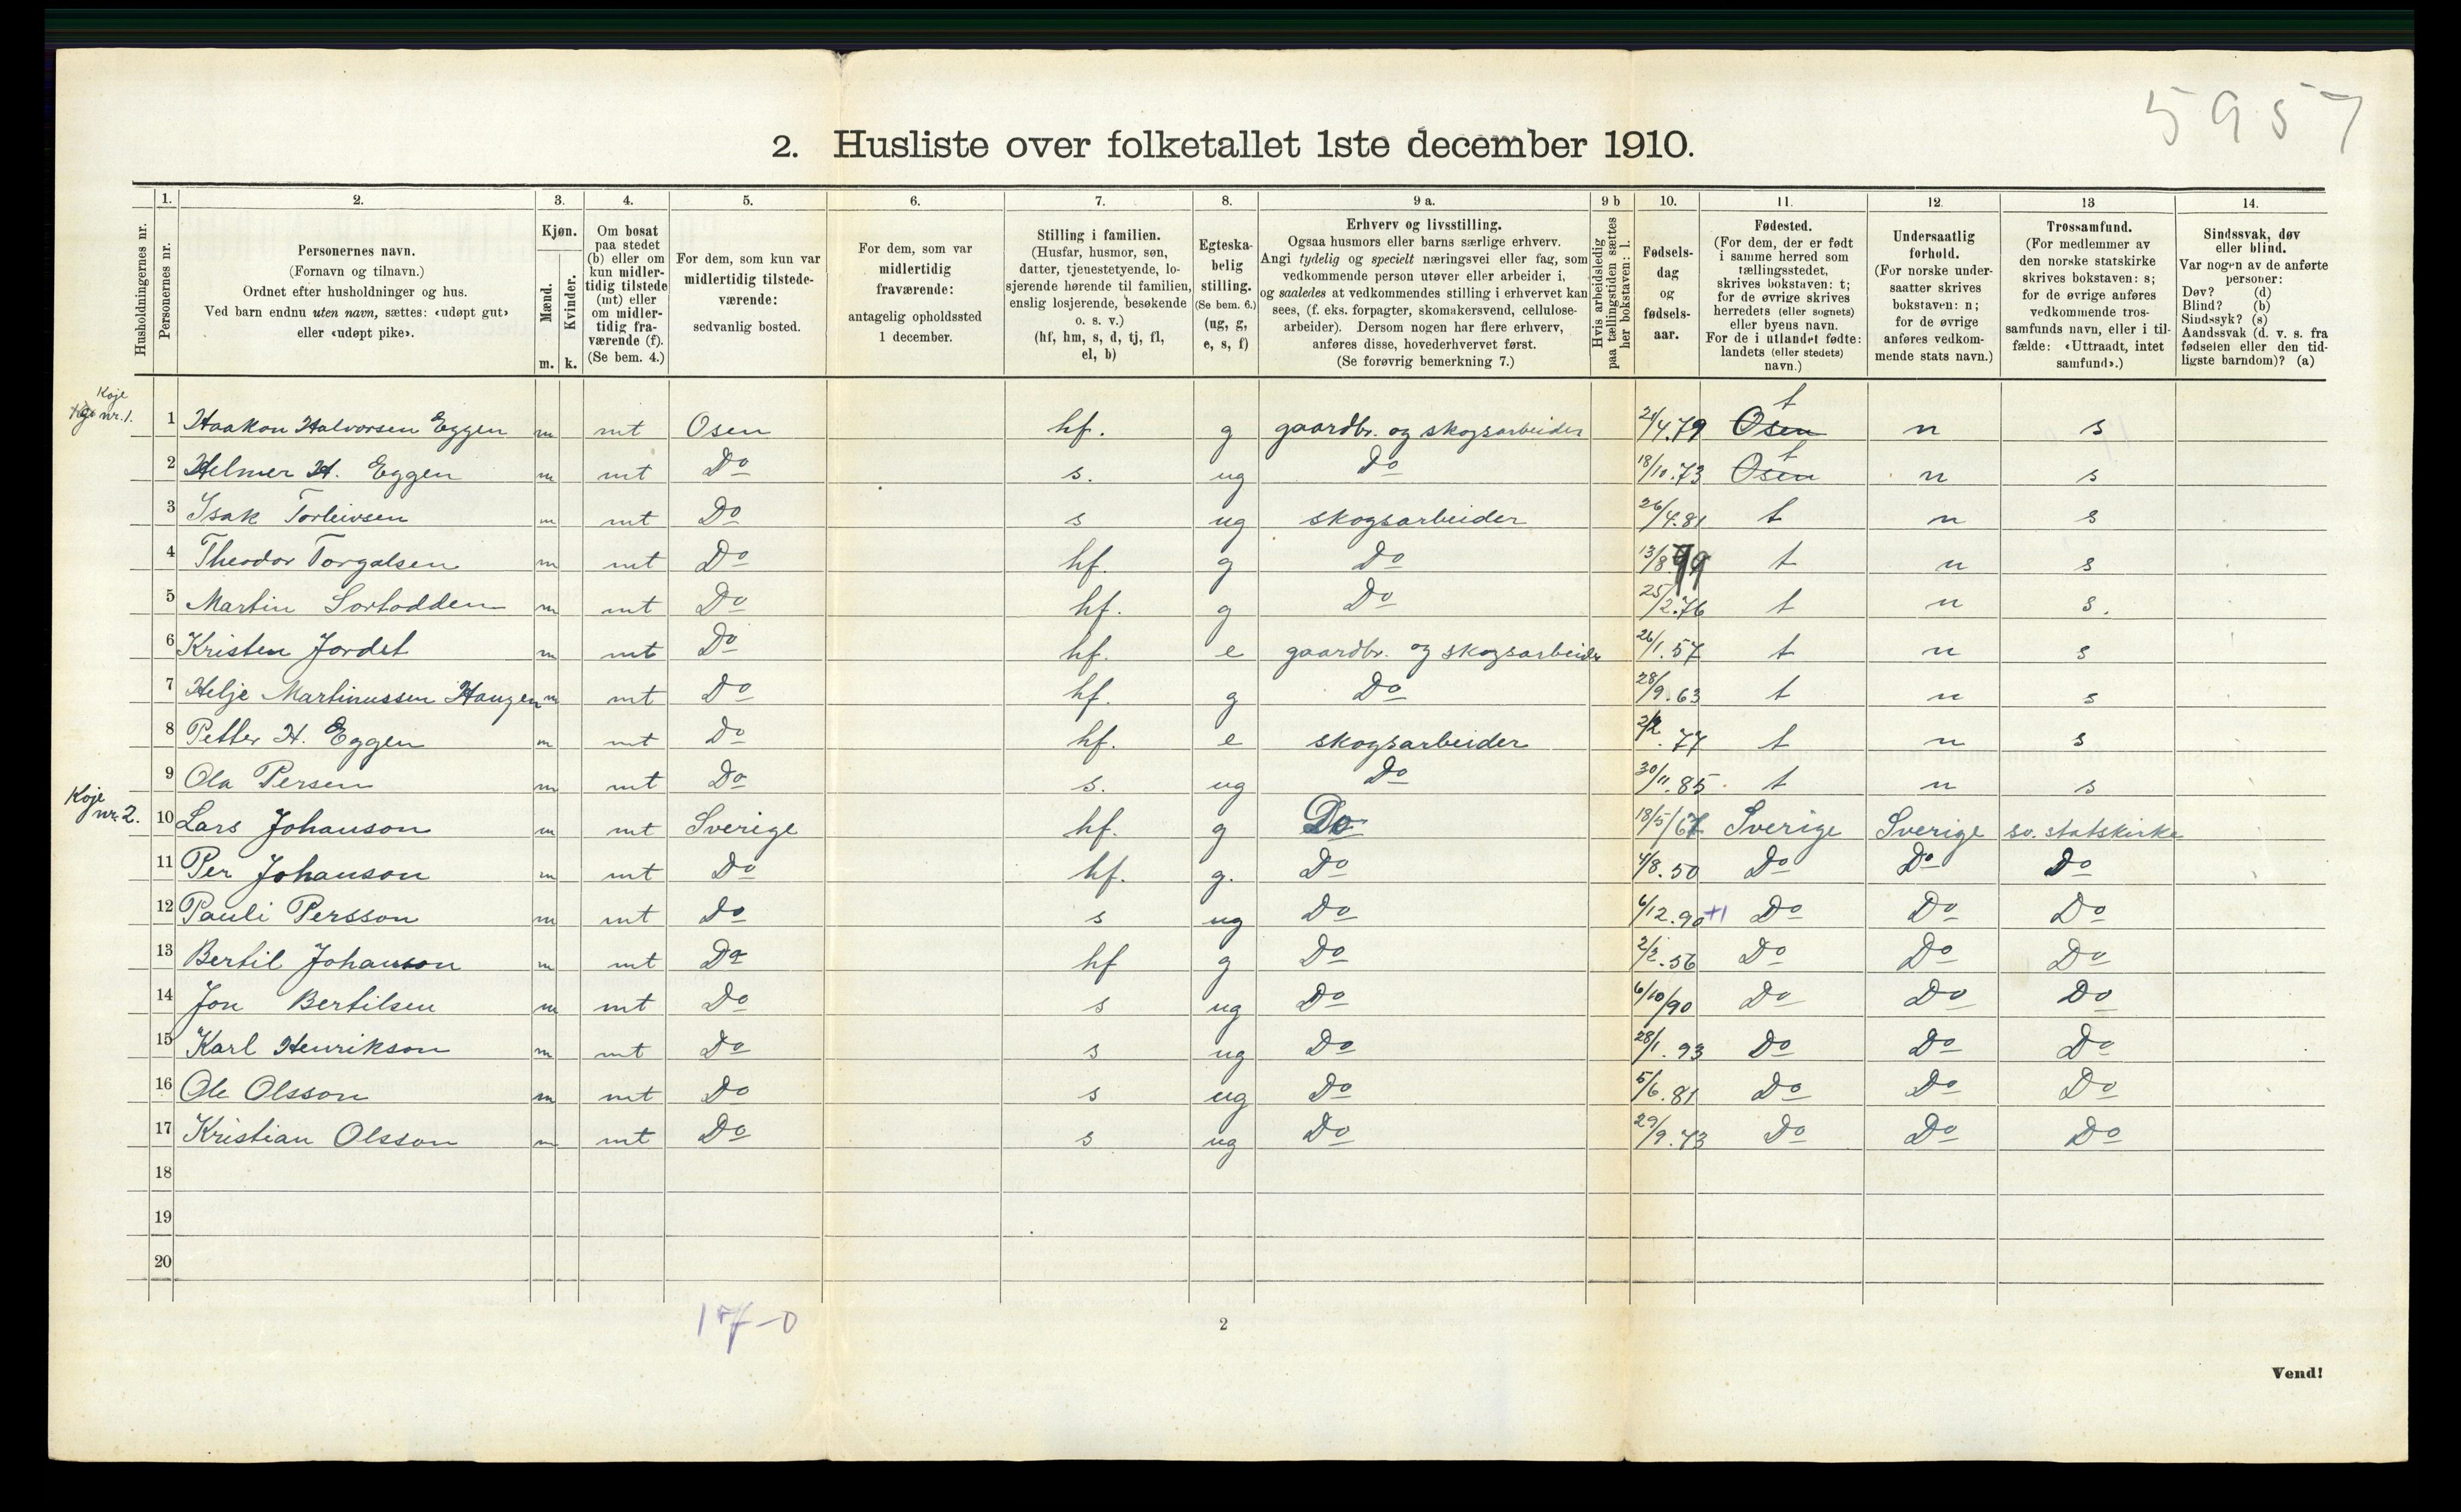 5957
2. Husliste over folketallet 1ste december 1910.
1. 2. 3. 4. 5. 6. 7. 8. 9 a. 9 b 10. 11. 12. 13 14.
Husholdningernes nr.
Personernes nr.
Personernes navn.
(Fornavn og tilnavn.)
Ordnet efter husholdninger og hus.
Ved barn endnu uten navn, sættes: «udøpt gut»
eller «udøpt pike».
Kjøn.
Mænd.
Kvinder.
m. k.
Om bosat
paa stedet
(b) eller om
kun midler-
tidig tilstede
(mt) eller
om midler-
tidig fra-
værende (f).
(Se bem. 4.)
For dem, som kun var
midlertidig tilstede-
værende:
sedvanlig bosted.
For dem, som var
midlertidig
fraværende:
antagelig opholdssted
1 december.
Stilling i familien.
(Husfar, husmor, søn,
datter, tjenestetyende, lo-
sjerende hørende til familien,
enslig losjerende, besøkende
o. s. v.)
(hf, hm, s, d, tj, fl,
el, b)
Egteska-
belig
stilling.
(Se bem. 6.)
(ug, g,
e, s, f)
Erhverv og livsstilling.
Ogsaa husmors eller barns særlige erhverv.
Angi tydelig og specielt næringsvei eller fag, som
vedkommende person utøver eller arbeider i,
og saaledes at vedkommendes stilling i erhvervet kan
sees, (f. eks. forpagter, skomakersvend, cellulose-
arbeider). Dersom nogen har flere erhverv,
anføres disse, hovederhvervet først.
(Se forøvrig bemerkning 7.)
Hvis arbeidsledig
paa tællingstiden sættes
her bokstaven: l.
Fødsels-
dag
og
fødsels-
aar.
Fødested.
(For dem, der er født
i samme herred som
tællingsstedet,
skrives bokstaven: t;
for de øvrige skrives
herredets (eller sognets)
eller byens navn.
For de i utlandet fødte:
landets (eller stedets)
navn.)
Undersaatlig
forhold.
(For norske under-
saatter skrives
bokstaven: n;
for de øvrige
anføres vedkom-
mende stats navn.)
Trossamfund.
(For medlemmer av
den norske statskirke
skrives bokstaven: s;
for de øvrige anføres
vedkommende tros-
samfunds navn, eller i til-
fælde: «Uttraadt, intet
samfund».)
Sindssvak, døv
eller blind.
Var nogen av de anførte
personer:
Døv? (d)
Blind? (b)
Sindssyk? (s)
Aandssvak (d. v. s. fra
fødselen eller den tid-
ligste barndom)? (a)
Koje
nr. 1.
1 Haakon Halvorsen Eggen m mt Osen hf. g gaardbr. og skogsarbeider 21/4.79 Osen t n s
2 Helmer H. Eggen m mt Do s. ug do 18/10.73 Osen t n s
3 Isak Torleivsen m mt Do s ug skogsarbeider 26/4.81 t n s
4 Theodor Torgalsen m mt Do hf. g Do 13/8 t n s
5 Martin Sorlodden m mt Do hf. g Do 25/2.76 t n s.
6 Kristen Jordet m mt Do hf. e gaardbr. og skogsarbeider 26/1.57 t n s
7 Helje Martinussen Haugen m mt Do hf. g Do 28/9.63 t n s
8 Petter H. Eggen m mt Do hf. e skogsarbeider 2/2.77 t n s
9 Ola Persen m mt Do s. ug Do 30/11.85 t n s
Koje
nr. 2.
10 Lars Johanson m mt Sverige hf. g Do 18/5/67 Sverige Sverige sv. statskirke
11 Per Johanson m mt Do hf. g. Do 4/8.50 Do Do Do
12 Pauli Persson m mt do s ug Do 6/12.90 +1 Do Do Do
13 Bertil Johanson m mt Do hf g Do 2/2.56 Do Do Do
14 Jon Bertilsen m mt Do s ug Do 6/10/90 Do Do Do
15 Karl Henrikson m mt Do s ug Do 28/1.93 Do Do Do
16 Ole Olsson m mt Do s ug Do 5/6.81 Do Do Do
17 Kristian Olsson m mt Do s ug Do 29/9.73 Do Do Do
18
19
20
17-0
2
Vend!